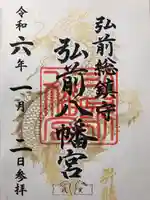 弘前総鎮守
弘前八幡宮
令和六年一月二日参拝